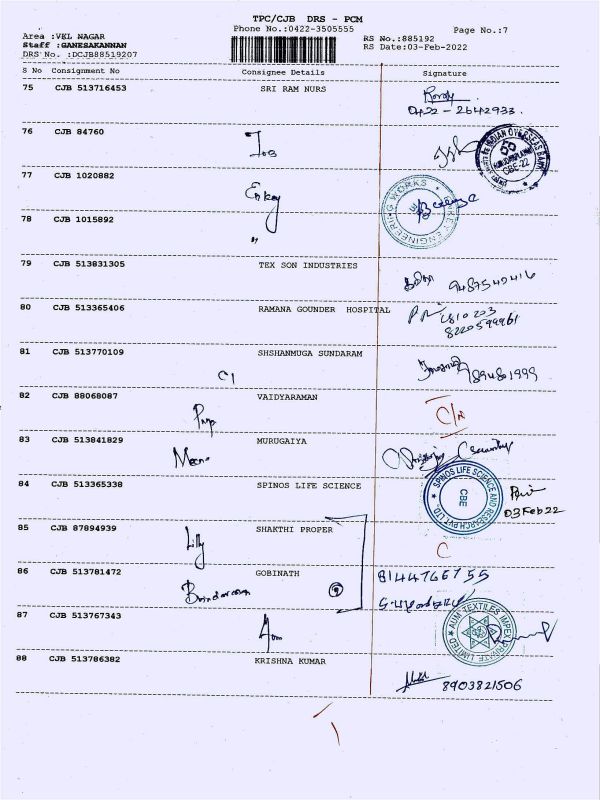 TPC/CJB DRS - PCM
Phone No.:0422-3505555
Page No.:7
Area :VKL NAGAR
RS No.:885192
Staff :GANESAKANNAN
RS Date:03-Feb-2022
DRS No. :DCJB88519207
S No Consignment No Consignee Details Signature
75 CJB 513716453 SRI RAM NURS
0422-2642933.
76 CJB 84760
INDIAN OVERSEAS BANK
CBE-22
77 CJB 1020882
Enkay
ENGINEERING WORKS
78 CJB 1015892
"
79 CJB 513831305 TEX SON INDUSTRIES
80 CJB 513365406 RAMANA GOUNDER HOSPITAL
8220599961
81 CJB 513770109 SHSHANMUGA SUNDARAM
C1
82 CJB 88068087 VAIDYARAMAN
83 CJB 513841829 MURUGAIYA
84 CJB 513365338 SPINOS LIFE SCIENCE
SPINOS LIFE SCIENCE AND RESEARCH PVT LTD
CBE
03 Feb 22
85 CJB 87894939 SHAKTHI PROPER
Lilly
C
86 CJB 513781472 GOBINATH
8144766755
87 CJB 513767343
AUM TEXTILES IMPEX PRIVATE LIMITED
88 CJB 513786382 KRISHNA KUMAR
8903821506